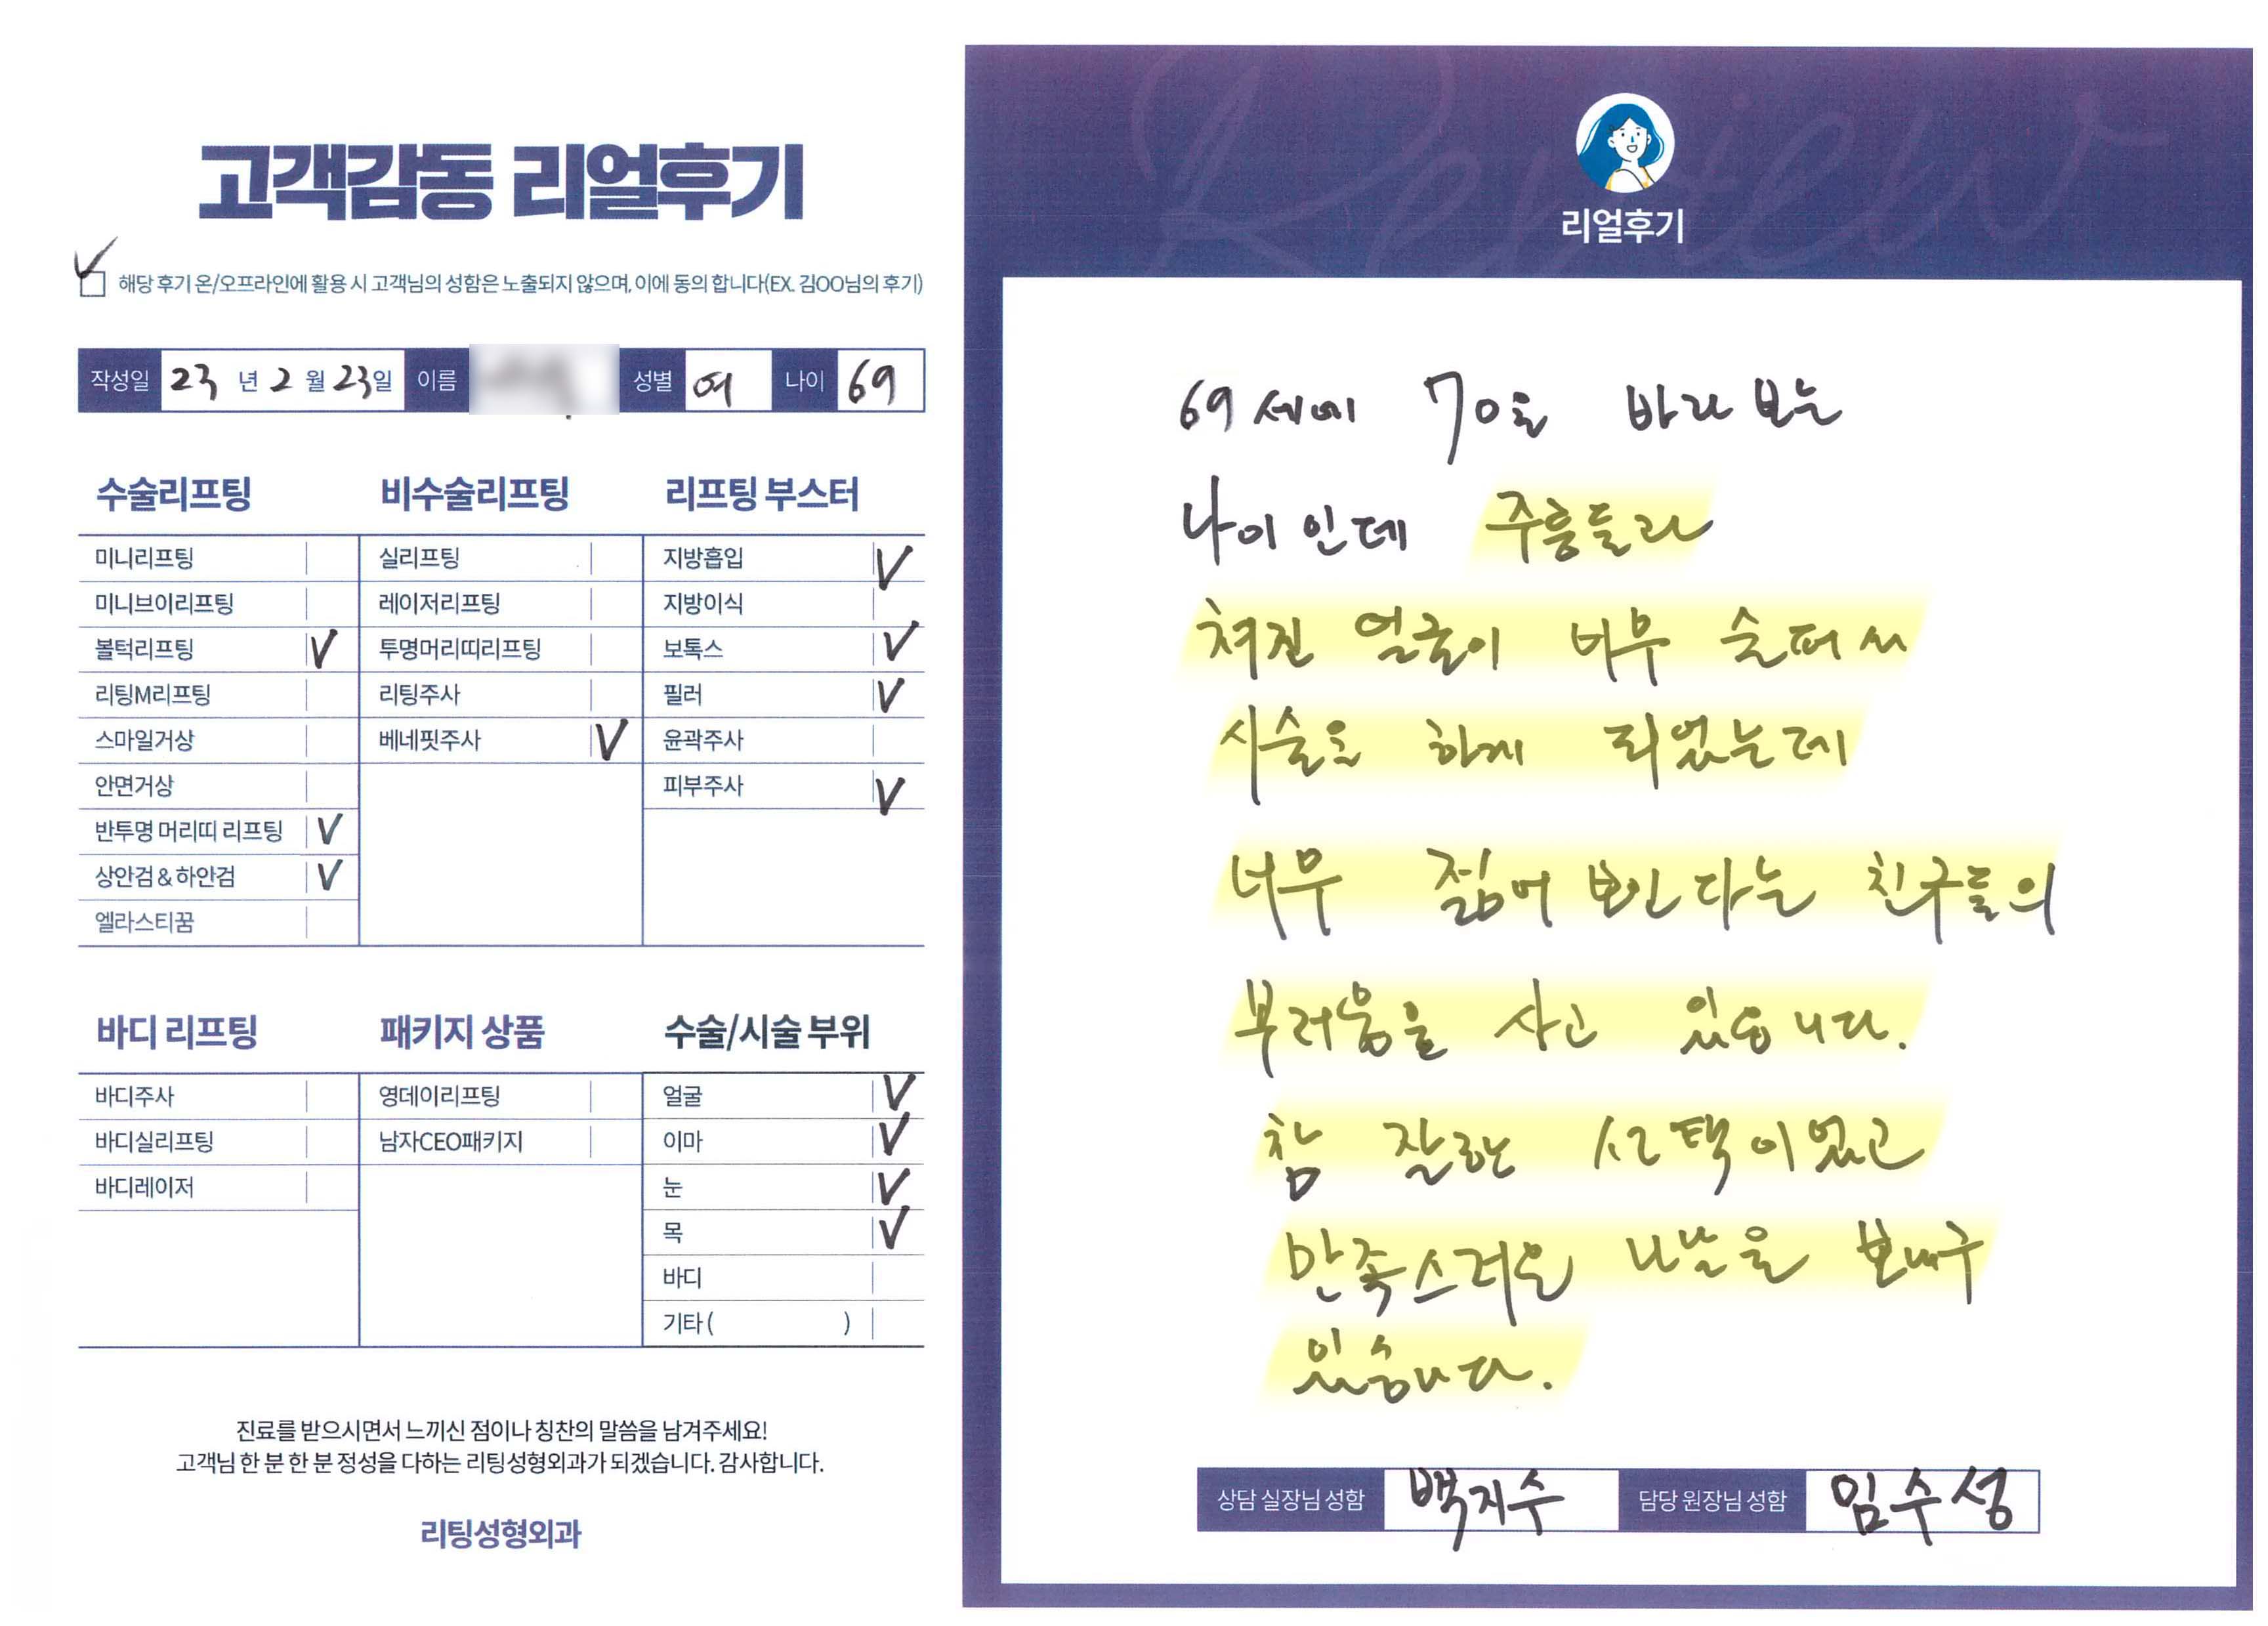 고객감동 리얼후기
✓ 해당 후기 온/오프라인에 활용 시 고객님의 성함은 노출되지 않으며, 이에 동의 합니다(EX. 김OO님의 후기)
작성일 23 년 2 월 23일 이름 성별 여 나이 69
수술리프팅
미니리프팅
미니브이리프팅
볼턱리프팅 ✓
리팅M리프팅
스마일거상
안면거상
반투명 머리띠 리프팅 ✓
상안검 & 하안검 ✓
엘라스티꿈
비수술리프팅
실리프팅
레이저리프팅
투명머리띠리프팅
리팅주사
베네핏주사 ✓
리프팅 부스터
지방흡입 ✓
지방이식
보톡스 ✓
필러 ✓
윤곽주사
피부주사 ✓
바디 리프팅
바디주사
바디실리프팅
바디레이저
패키지 상품
영데이리프팅
남자CEO패키지
수술/시술 부위
얼굴 ✓
이마 ✓
눈 ✓
목 ✓
바디
기타 ( )
진료를 받으시면서 느끼신 점이나 칭찬의 말씀을 남겨주세요!
고객님 한 분 한 분 정성을 다하는 리팅성형외과가 되겠습니다. 감사합니다.
리팅성형외과
Review
리얼후기
69세에 70을 바라보는
나이인데 주흥들라
쳐진 얼굴이 너무 슬퍼서
시술을 하게 되었는데
너무 젊어 보인다는 친구들의
부러움을 사고 있읍니다.
참 잘한 선택이었고
만족스러운 나날을 보내구
있습니다.
상담 실장님 성함 백지수 담당 원장님 성함 임수성